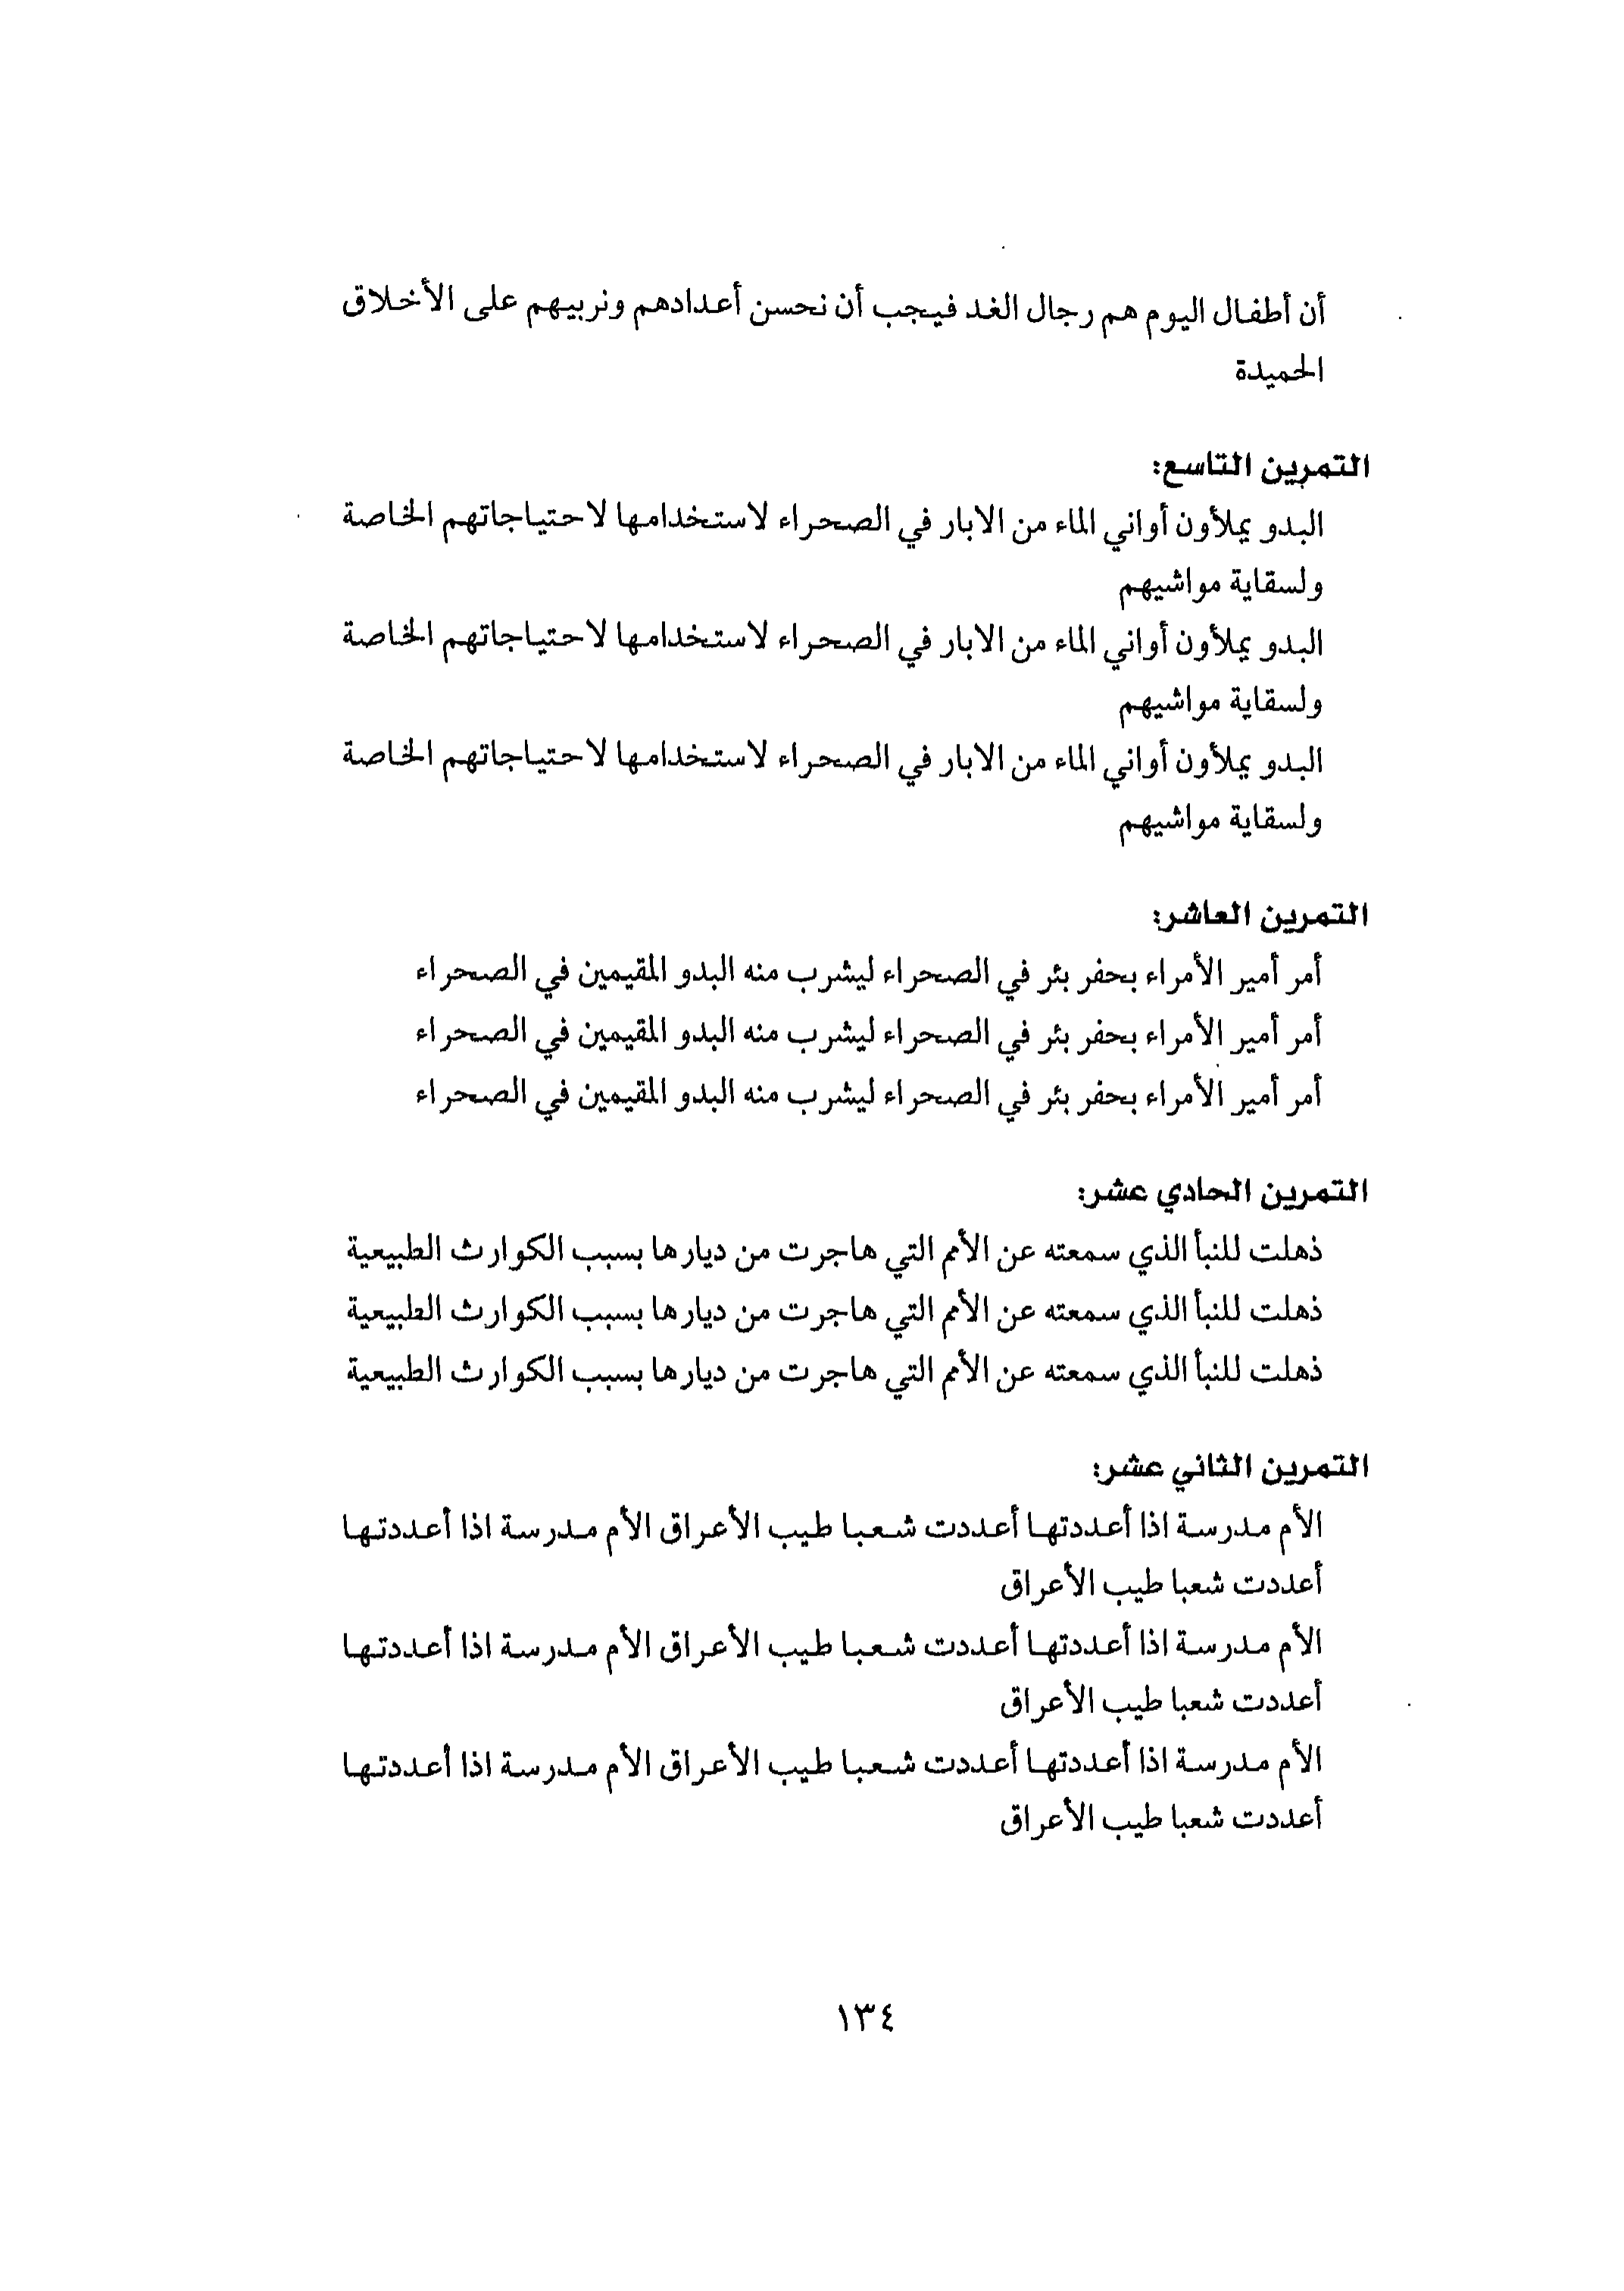 أن أطفال اليوم هم رجال الغد فيجب أن نحسن أعدادهم ونربيهم على الأخلاق
الحميدة
التمرين التاسع:
البدو يملأون أواني الماء من الابار في الصحراء لاستخدامها لاحتياجاتهم الخاصة
ولسقاية مواشيهم
البدو يملأون أواني الماء من الابار في الصحراء لاستخدامها لاحتياجاتهم الخاصة
ولسقاية مواشيهم
البدو يملأون أواني الماء من الابار في الصحراء لاستخدامها لاحتياجاتهم الخاصة
ولسقاية مواشيهم
التمرين العاشر:
أمر أمير الأمراء بحفر بئر في الصحراء ليشرب منه البدو المقيمين في الصحراء
أمر أمير الأمراء بحفر بئر في الصحراء ليشرب منه البدو المقيمين في الصحراء
أمر أمير الأمراء بحفر بئر في الصحراء ليشرب منه البدو المقيمين في الصحراء
التمرين الحادي عشر:
ذهلت للنبأ الذي سمعته عن الأمم التي هاجرت من ديارها بسبب الكوارث الطبيعية
ذهلت للنبأ الذي سمعته عن الأمم التي هاجرت من ديارها بسبب الكوارث الطبيعية
ذهلت للنبأ الذي سمعته عن الأمم التي هاجرت من ديارها بسبب الكوارث الطبيعية
التمرين الثاني عشر:
الأم مدرسة اذا أعددتها أعددت شعبا طيب الأعراق الأم مدرسة اذا أعددتها
أعددت شعبا طيب الأعراق
الأم مدرسة اذا أعددتها أعددت شعبا طيب الأعراق الأم مدرسة اذا أعددتها
أعددت شعبا طيب الأعراق
الأم مدرسة اذا أعددتها أعددت شعبا طيب الأعراق الأم مدرسة اذا أعددتها
أعددت شعبا طيب الأعراق
١٣٤